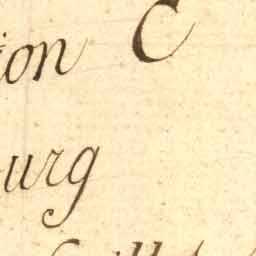 ion C
urg